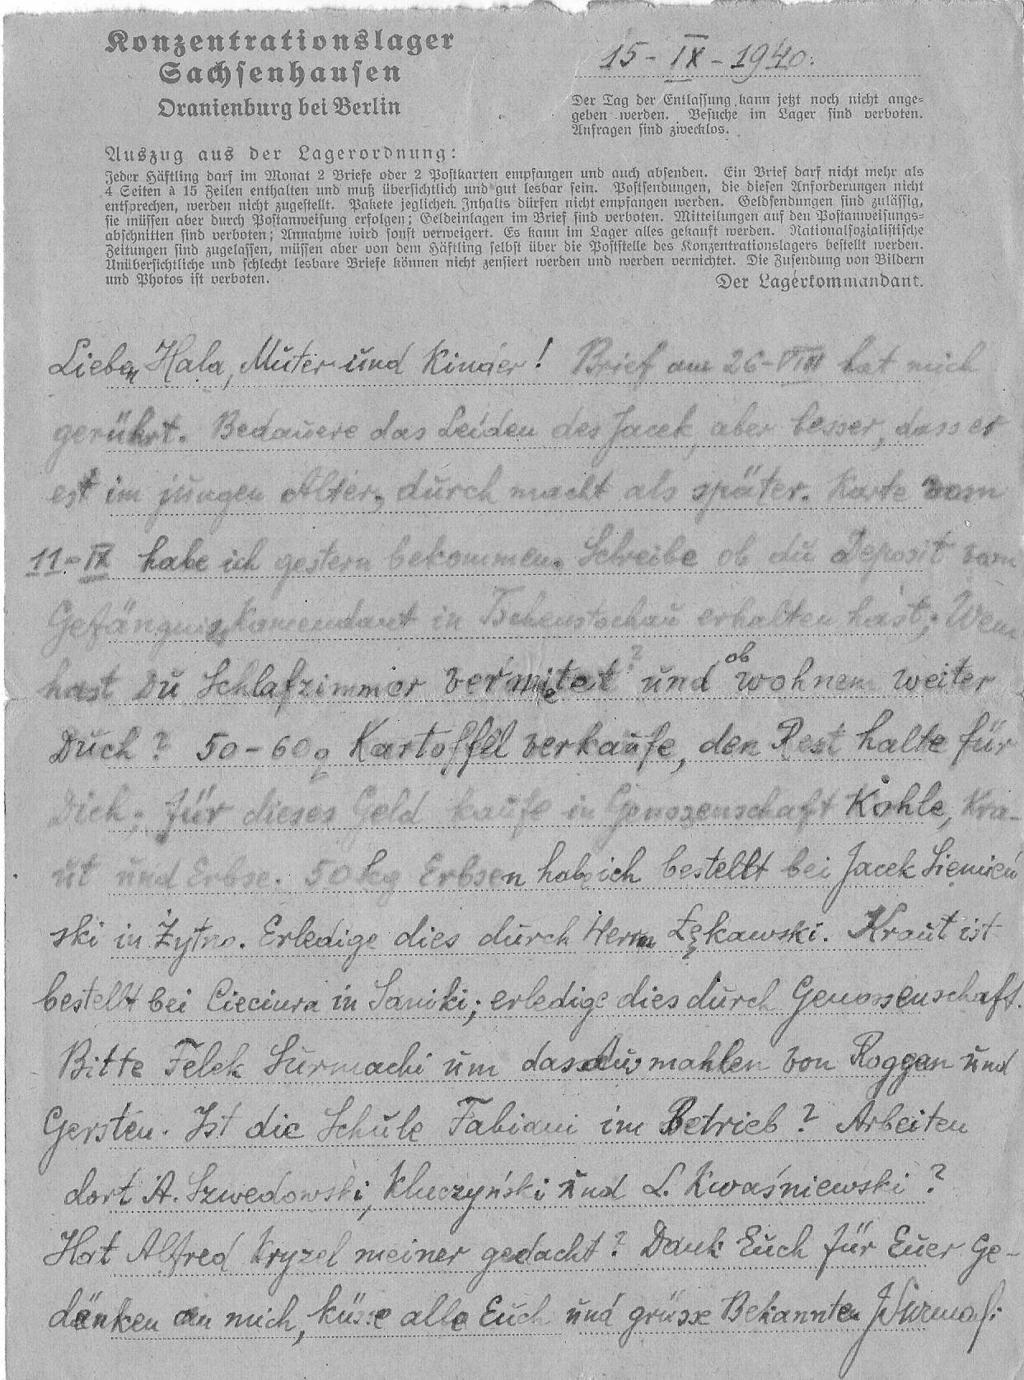 Konzentrationslager
Sachsenhausen
Oranienburg bei Berlin
15-IX-1940.
Der Tag der Entlassung kann jetzt noch nicht ange-
geben werden. Besuche im Lager sind verboten.
Anfragen sind zwecklos.
Auszug aus der Lagerordnung:
Jeder Häftling darf im Monat 2 Briefe oder 2 Postkarten empfangen und auch absenden. Ein Brief darf nicht mehr als
4 Seiten à 15 Zeilen enthalten und muß übersichtlich und gut lesbar sein. Postsendungen, die diesen Anforderungen nicht
entsprechen, werden nicht zugestellt. Pakete jeglichen Inhalts dürfen nicht empfangen werden. Geldsendungen sind zulässig,
sie müssen aber durch Postanweisung erfolgen; Geldeinlagen im Brief sind verboten. Mitteilungen auf den Postanweisungs-
abschnitten sind verboten; Annahme wird sonst verweigert. Es kann im Lager alles gekauft werden. Nationalsozialistische
Zeitungen sind zugelassen, müssen aber von dem Häftling selbst über die Poststelle des Konzentrationslagers bestellt werden.
Unübersichtliche und schlecht lesbare Briefe können nicht zensiert werden und werden vernichtet. Die Zusendung von Bildern
und Photos ist verboten.
Der Lagerkommandant.
Lieben Hala, Muter und Kinder! Brief am 26-VIII hat mich
gerührt. Bedauere das Leiden des Jacek, aber besser, dass er
est im jungen Alter, durch macht als später. Karte vom
11-IX habe ich gestern bekommen. Schreibe ob du Deposit vom
Gefängnis Komendant in Tschenstochau erhalten hast; Wem
hast Du Schlafzimmer vermietet? und ob wohnen weiter
Duch? 50-60q Kartoffel verkaufe, den Rest halte für
Dich; für dieses Geld kaufe in Genossenschaft Kohle, Kra-
ut und Erbse. 50kg Erbsen hab ich bestellt bei Jacek Siemień
ski in Żytno. Erledige dies durch Herrn Łękawski. Kraut ist
bestellt bei Cieciura in Saniki; erledige dies durch Genossenschaft.
Bitte Felek Surmachi um das Ausmahlen von Roggen und
Gersten. Ist die Schule Fabiani im Betrieb? Arbeiten
dort A. Szwedowski, Kluczyński und L. Kwaśniewski?
Hat Alfred Kryzel meiner gedacht? Dank Euch für Euer Ge-
denken an mich, küsse alle Euch und grüsse Bekannten